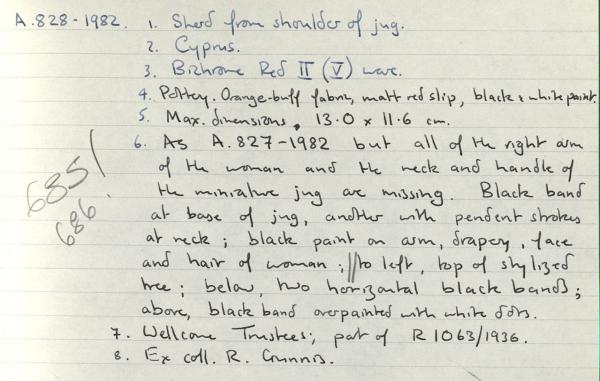 A.828-1982. 1. Sherd from shoulder of jug.
2. Cyprus.
3. Bichrome Red II (V) ware.
4. Pottery. Orange-buff fabric, matt red slip, black & white paint.
5. Max. dimensions, 13.0 x 11.6 cm.
6. As A.827-1982 but all of the right arm
of the woman and the neck and handle of
the miniature jug are missing. Black band
at base of jug, another with pendent strokes
at neck; black paint on arm, drapery, face
and hair of woman; || to left, top of stylized
tree; below, two horizontal black bands;
above, black band overpainted with white dots.
7. Wellcome Trustees; part of R1063/1936.
8. Ex coll. R. Gunnis.
685/
686.